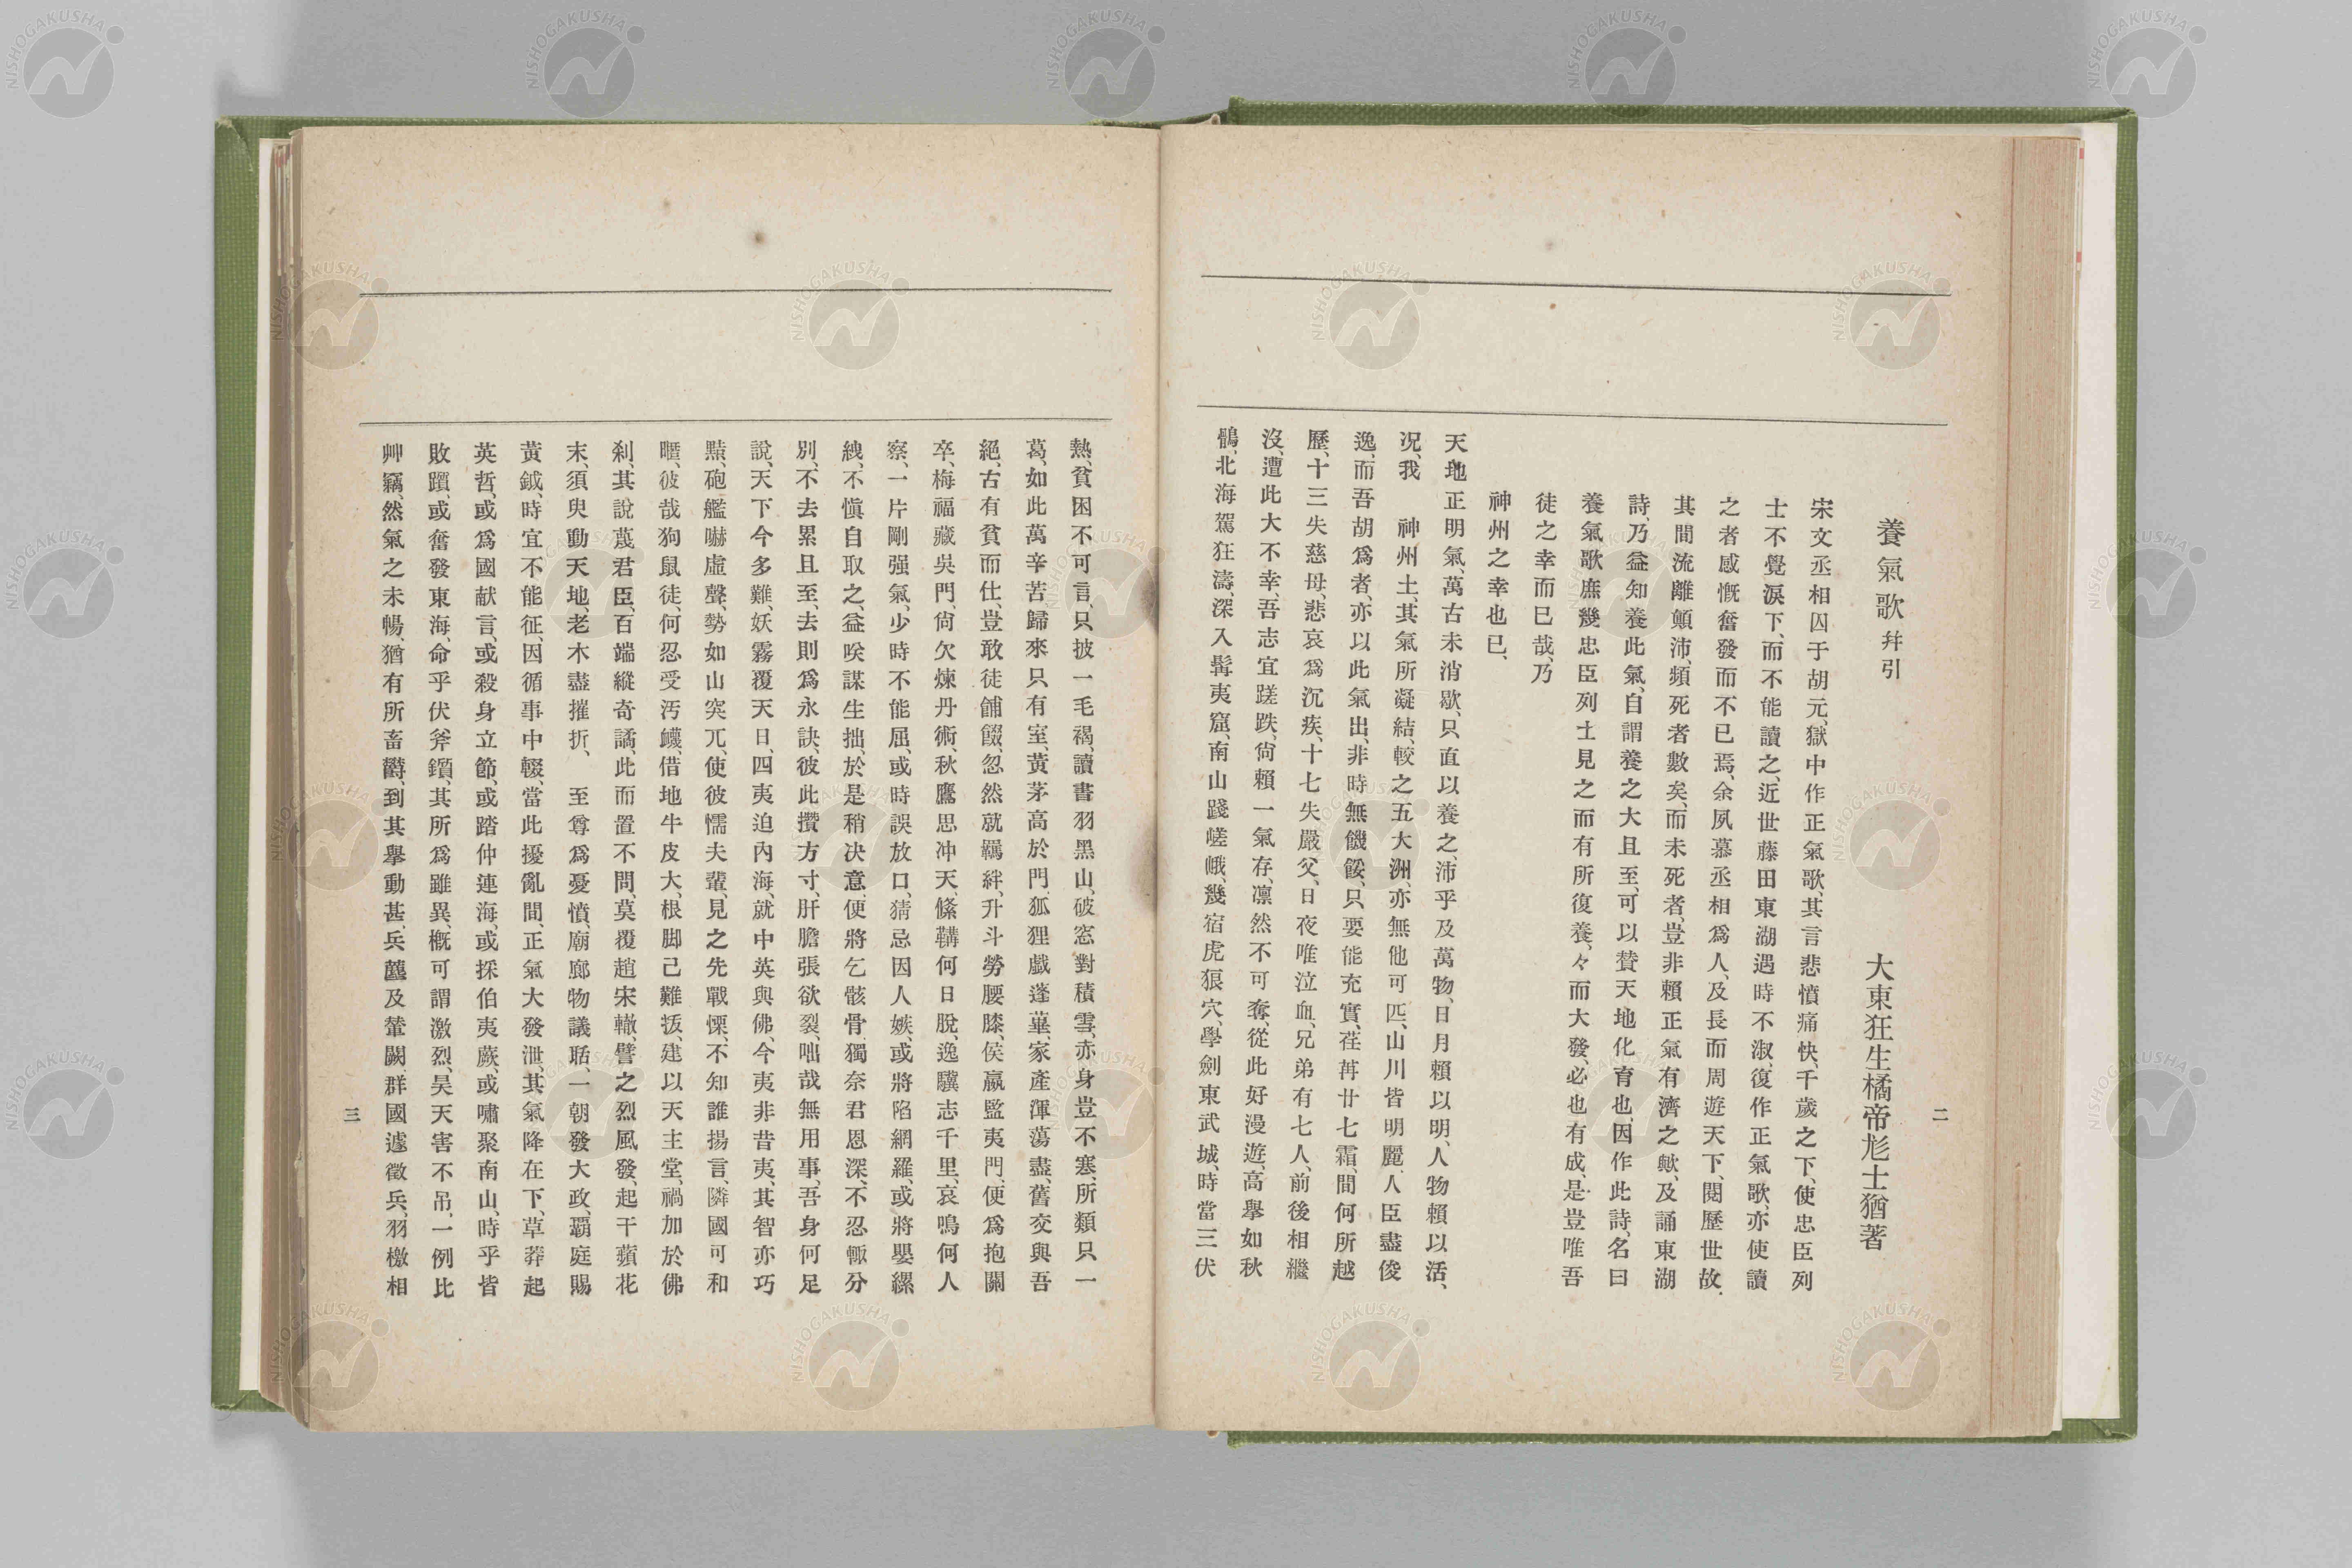 二
養氣歌 幷引
大東狂生橘帝尨士猶著
宋文丞相囚于胡元、獄中作正氣歌、其言悲憤痛快、千歲之下、使忠臣列
士不覺淚下、而不能讀之、近世藤田東湖遇時不淑、復作正氣歌、亦使讀
之者感慨奮發而不已焉、余夙慕丞相爲人、及長而周遊天下、閱歷世故、
其間流離顚沛、頻死者數矣、而未死者、豈非賴正氣有濟之歟、及誦東湖
詩、乃益知養此氣、自謂養之大且至、可以賛天地化育也、因作此詩、名曰
養氣歌庶幾忠臣列士見之而有所復養、々而大發、必也有成、是豈唯吾
徒之幸而已哉、乃
神州之幸也已、
天地正明氣、萬古未消歇、只直以養之、沛乎及萬物、日月賴以明、人物賴以活、
况我 神州土、其氣所凝結、較之五大洲、亦無他可匹、山川皆明麗、人臣盡俊
逸、而吾胡爲者、亦以此氣出、非時無饑餒、只要能充實、荏苒廿七霜、間何所越
歷、十三失慈母、悲哀爲沉疾、十七失嚴父、日夜唯泣血、兄弟有七人、前後相繼
沒、遭此大不幸、吾志宜蹉跌、尙賴一氣存、凛然不可奪、從此好漫遊、高擧如秋
鶻、北海駕狂濤、深入髯夷窟、南山踐嵯峨、幾宿虎狼穴、學劍東武城、時當三伏
熱、貧困不可言、只披一毛褐、讀書羽黑山、破窓對積雪、赤身豈不塞、所類只一
葛、如此萬辛苦、歸來只有室、黃茅高於門、狐狸戲蓬蓽、家產渾蕩盡、舊交與吾
絕、古有貧而仕、豈敢徒餔餟、忽然就羈絆、升斗勞腰膝、侯嬴監夷門、便爲抱關
卒、梅福藏吳門、尙欠煉丹術、秋鷹思冲天、絛鞲何日脫、逸驥志千里、哀鳴何人
察、一片剛强氣、少時不能屈、或時誤放口、猜忌因人嫉、或將陷網羅、或將嬰縲
絏、不愼自取之、益唉謀生拙、於是稍决意、便將乞骸骨、獨奈君恩深、不忍輙分
別、不去累且至、去則爲永訣、彼此攢方寸、肝膽張欲裂、咄哉無用事、吾身何足
說、天下今多難、妖霧覆天日、四夷迫內海、就中英與佛、今夷非昔夷、其智亦巧
黠、砲艦嚇虛聲、勢如山突兀、使彼懦夫輩、見之先戰慄、不知誰揚言、隣國可和
暱、彼哉狗鼠徒、何忍受汚衊、借地牛皮大、根脚已難拔、建以天主堂、禍加於佛
刹、其說蔑君臣、百端縱奇譎、此而置不問、莫覆趙宋轍、譬之烈風發、起于蘋花
末、須臾動天地、老木盡摧折、 至尊爲憂憤、廟廊物議聒、一朝發大政、覇庭賜
黃鉞、時宜不能征、因循事中輟、當此擾亂間、正氣大發泄、其氣降在下、草莽起
英哲、或爲國献言、或殺身立節、或踏仲連海、或採伯夷蕨、或嘯聚南山、時乎皆
敗躓、或奮發東海、命乎伏斧鑕、其所爲雖異、槪可謂激烈、昊天害不吊、一例比
艸竊、然氣之未暢、猶有所畜欝、到其擧動甚、兵藎及輦闕、群國遽徵兵、羽檄相
三